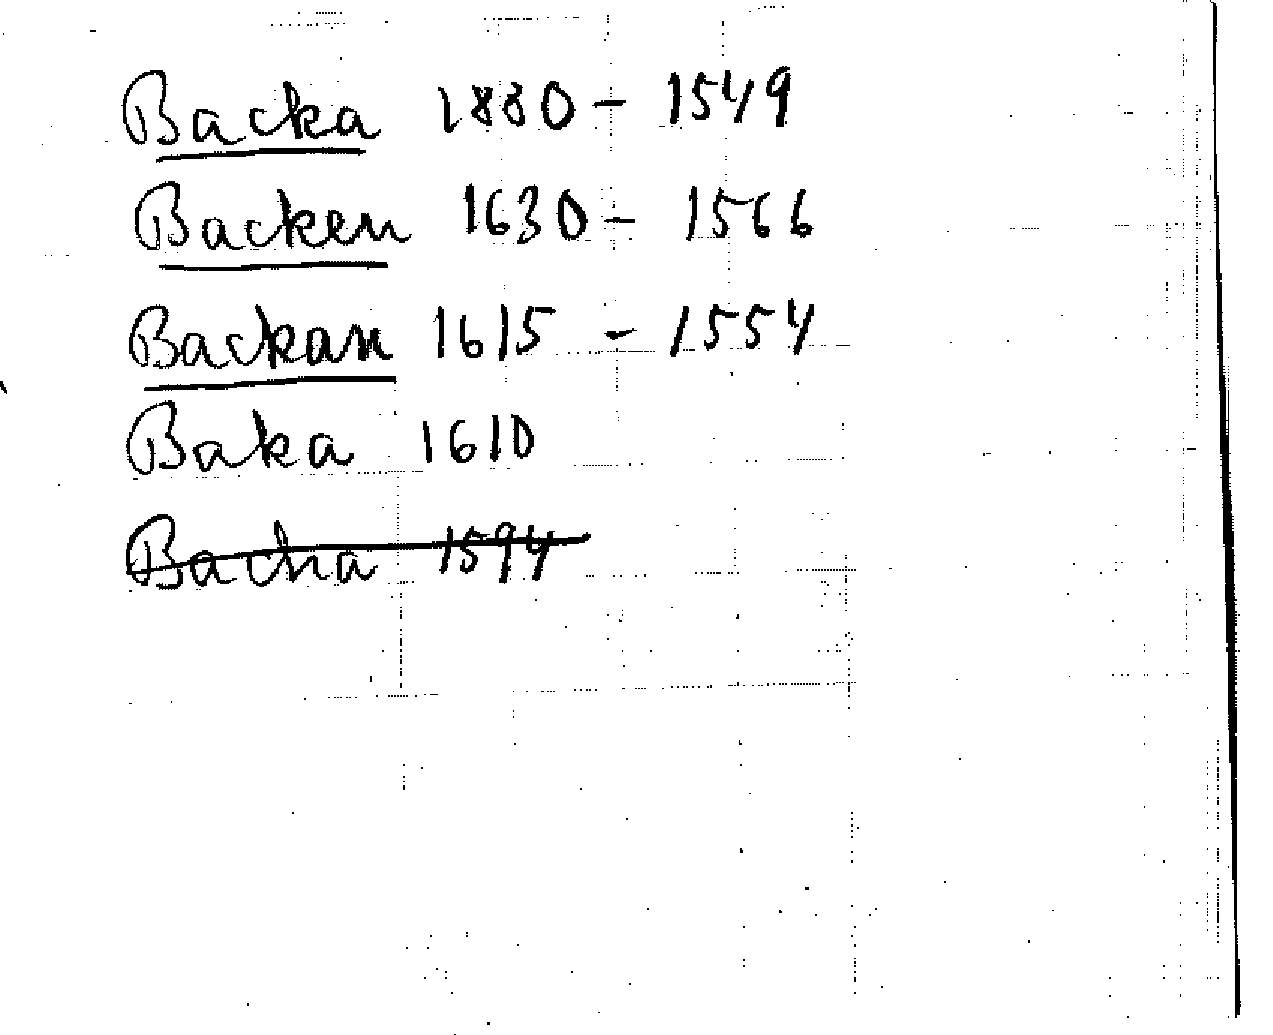 Backa 1880 - 1549
Backen 1630 - 1566
Backan 1615 - 1554
Baka 1610
Bacha 1594